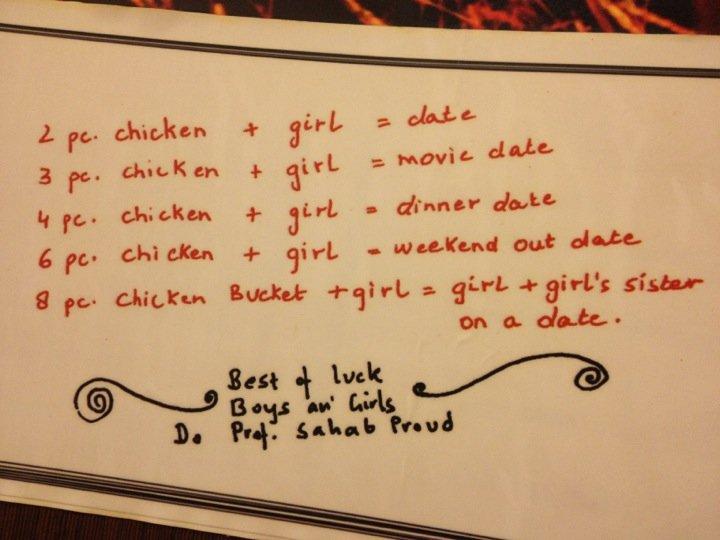 2 pc. chicken + girl = date
3 pc. chicken + girl = movie date
4 pc. chicken + girl = dinner date
6 pc. chicken + girl = weekend out date
8 pc. Chicken Bucket + girl = girl + girl's sister
on a date.
Best of luck
Boys an' Girls
Do Prof. Sahab Proud